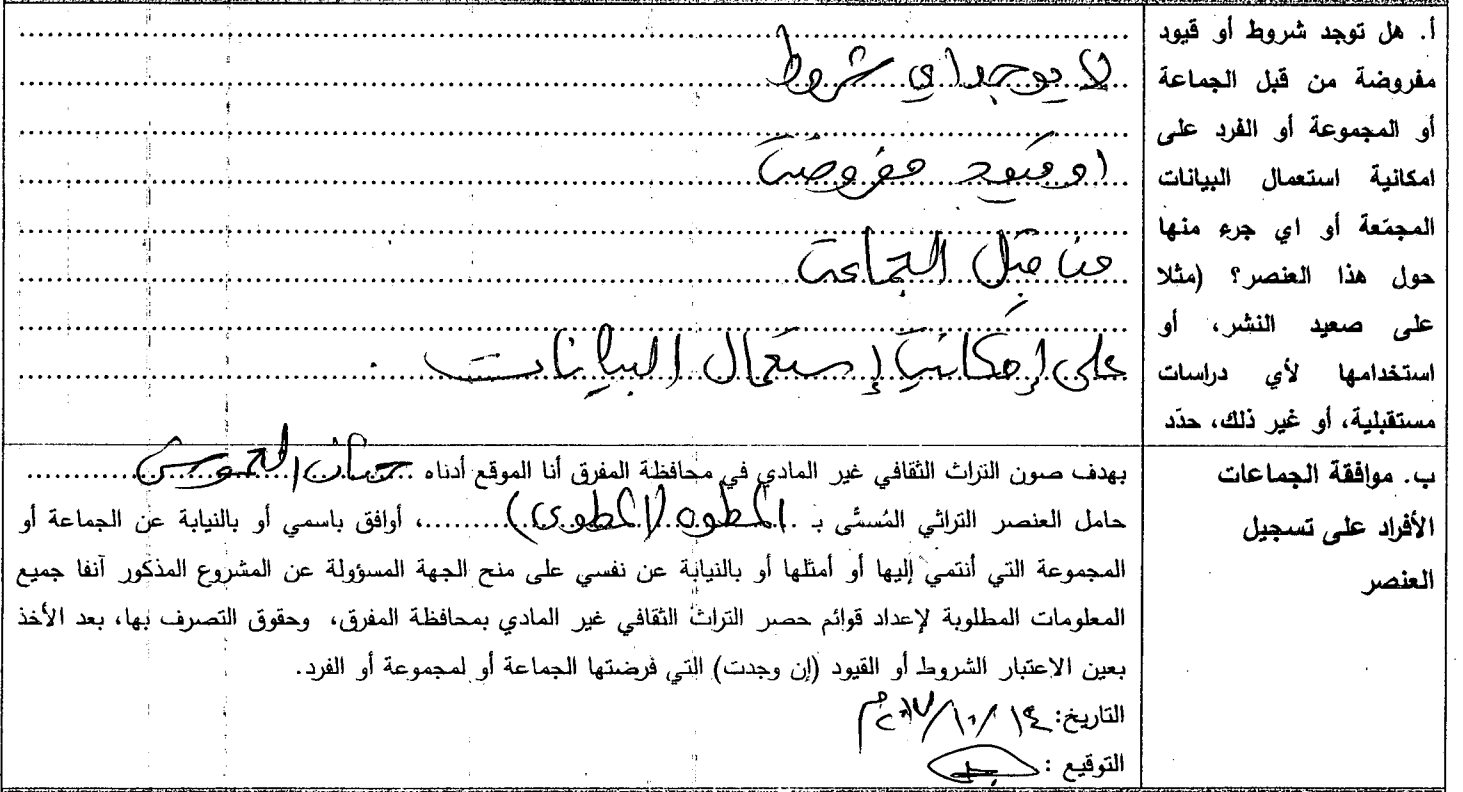 أ. هل توجد شروط أو قيود
مفروضة من قبل الجماعة
أو المجموعة أو الفرد على
امكانية استعمال البيانات
المجمّعة أو اي جزء منها
حول هذا العنصر؟ (مثلا
على صعيد النشر، أو
استخدامها لأي دراسات
مستقبلية، أو غير ذلك، حدّد
لا يوجد اي شروط
او قيود مفروضة
من قبل الجماعة
على إمكانية إستعمال البيانات .
ب. موافقة الجماعات
الأفراد على تسجيل
العنصر
بهدف صون التراث الثقافي غير المادي في محافظة المفرق أنا الموقع أدناه
حامل العنصر التراثي المُسمَّى بـ المطوه (المطوى)، أوافق باسمي أو بالنيابة عن الجماعة أو
المجموعة التي أنتمي إليها أو أمثلها أو بالنيابة عن نفسي على منح الجهة المسؤولة عن المشروع المذكور آنفا جميع
المعلومات المطلوبة لإعداد قوائم حصر التراث الثقافي غير المادي بمحافظة المفرق، وحقوق التصرف بها، بعد الأخذ
بعين الاعتبار الشروط أو القيود (إن وجدت) التي فرضتها الجماعة أو لمجموعة أو الفرد.
التاريخ: ١٤/١٠/٢٠١٧م
التوقيع :